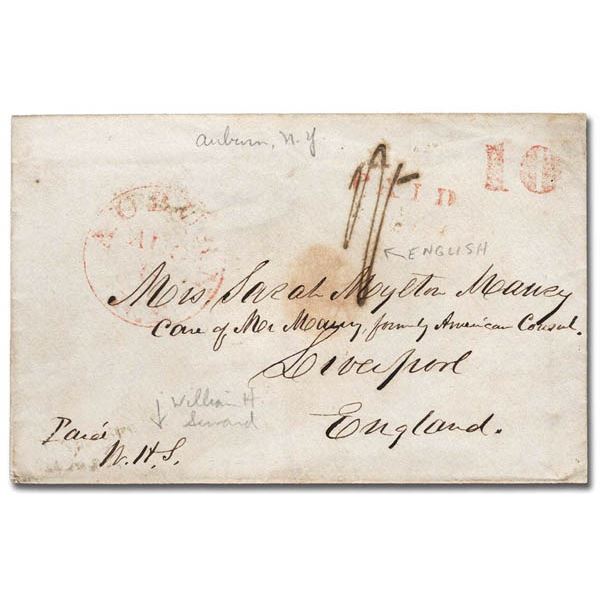 Auburn, N.Y.
PAID 10
AUBUR
AUG
← ENGLISH
Mrs Sarah Mytton Maury
Care of Mr Maury, formerly American Consul.
Liverpool
England.
↓ William H.
Seward
Paid
W.H.S.